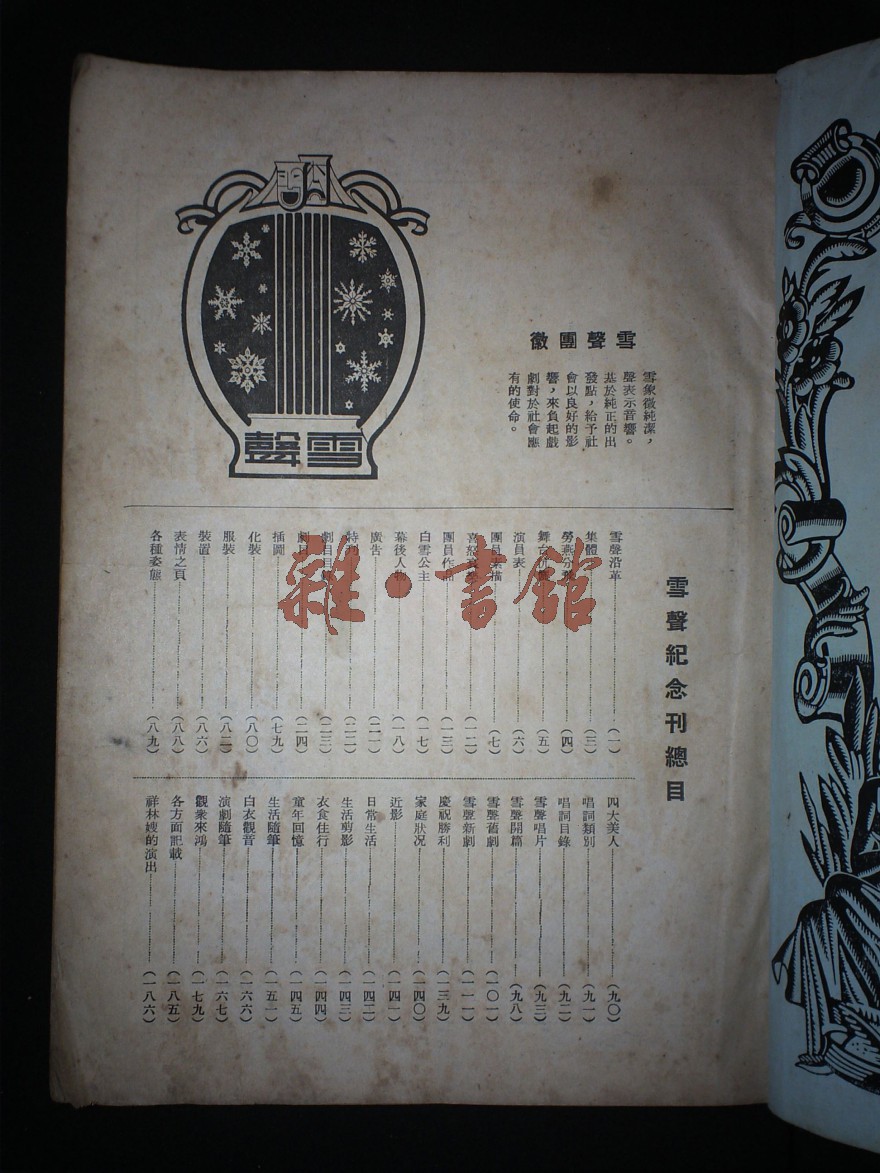 雪聲
雪聲團徽
雪象徵純潔，
聲表示音響。
基於純正的出
發點，給予社
會以良好的影
響，來負起戲
劇對於社會應
有的使命。
雪聲紀念刊總目
雪聲沿革（一）
集體（三）
勞燕分（四）
舞台（五）
演員表（六）
團員素描（七）
喜怒（一二）
團員作品（一三）
白雪公主（一七）
幕後人物（一八）
廣告（二一）
特刊（二二）
劇目目（二三）
劇目（二四）
插圖（七九）
化裝（八〇）
服裝（八二）
裝置（八六）
表情之頁（八八）
各種姿態（八九）
四大美人（九〇）
唱詞類別（九一）
唱詞目錄（九二）
雪聲唱片（九三）
雪聲開篇（九八）
雪聲舊劇（一〇一）
雪聲新劇（一一一）
慶祝勝利（一三九）
家庭狀况（一四〇）
近影（一四一）
日常生活（一四二）
生活剪影（一四三）
衣食住行（一四四）
童年回憶（一四五）
生活隨筆（一五一）
白衣觀音（一六六）
演劇隨筆（一六七）
觀衆來鴻（一七九）
各方面記載（一八五）
祥林嫂的演出（一八六）
雜·書館